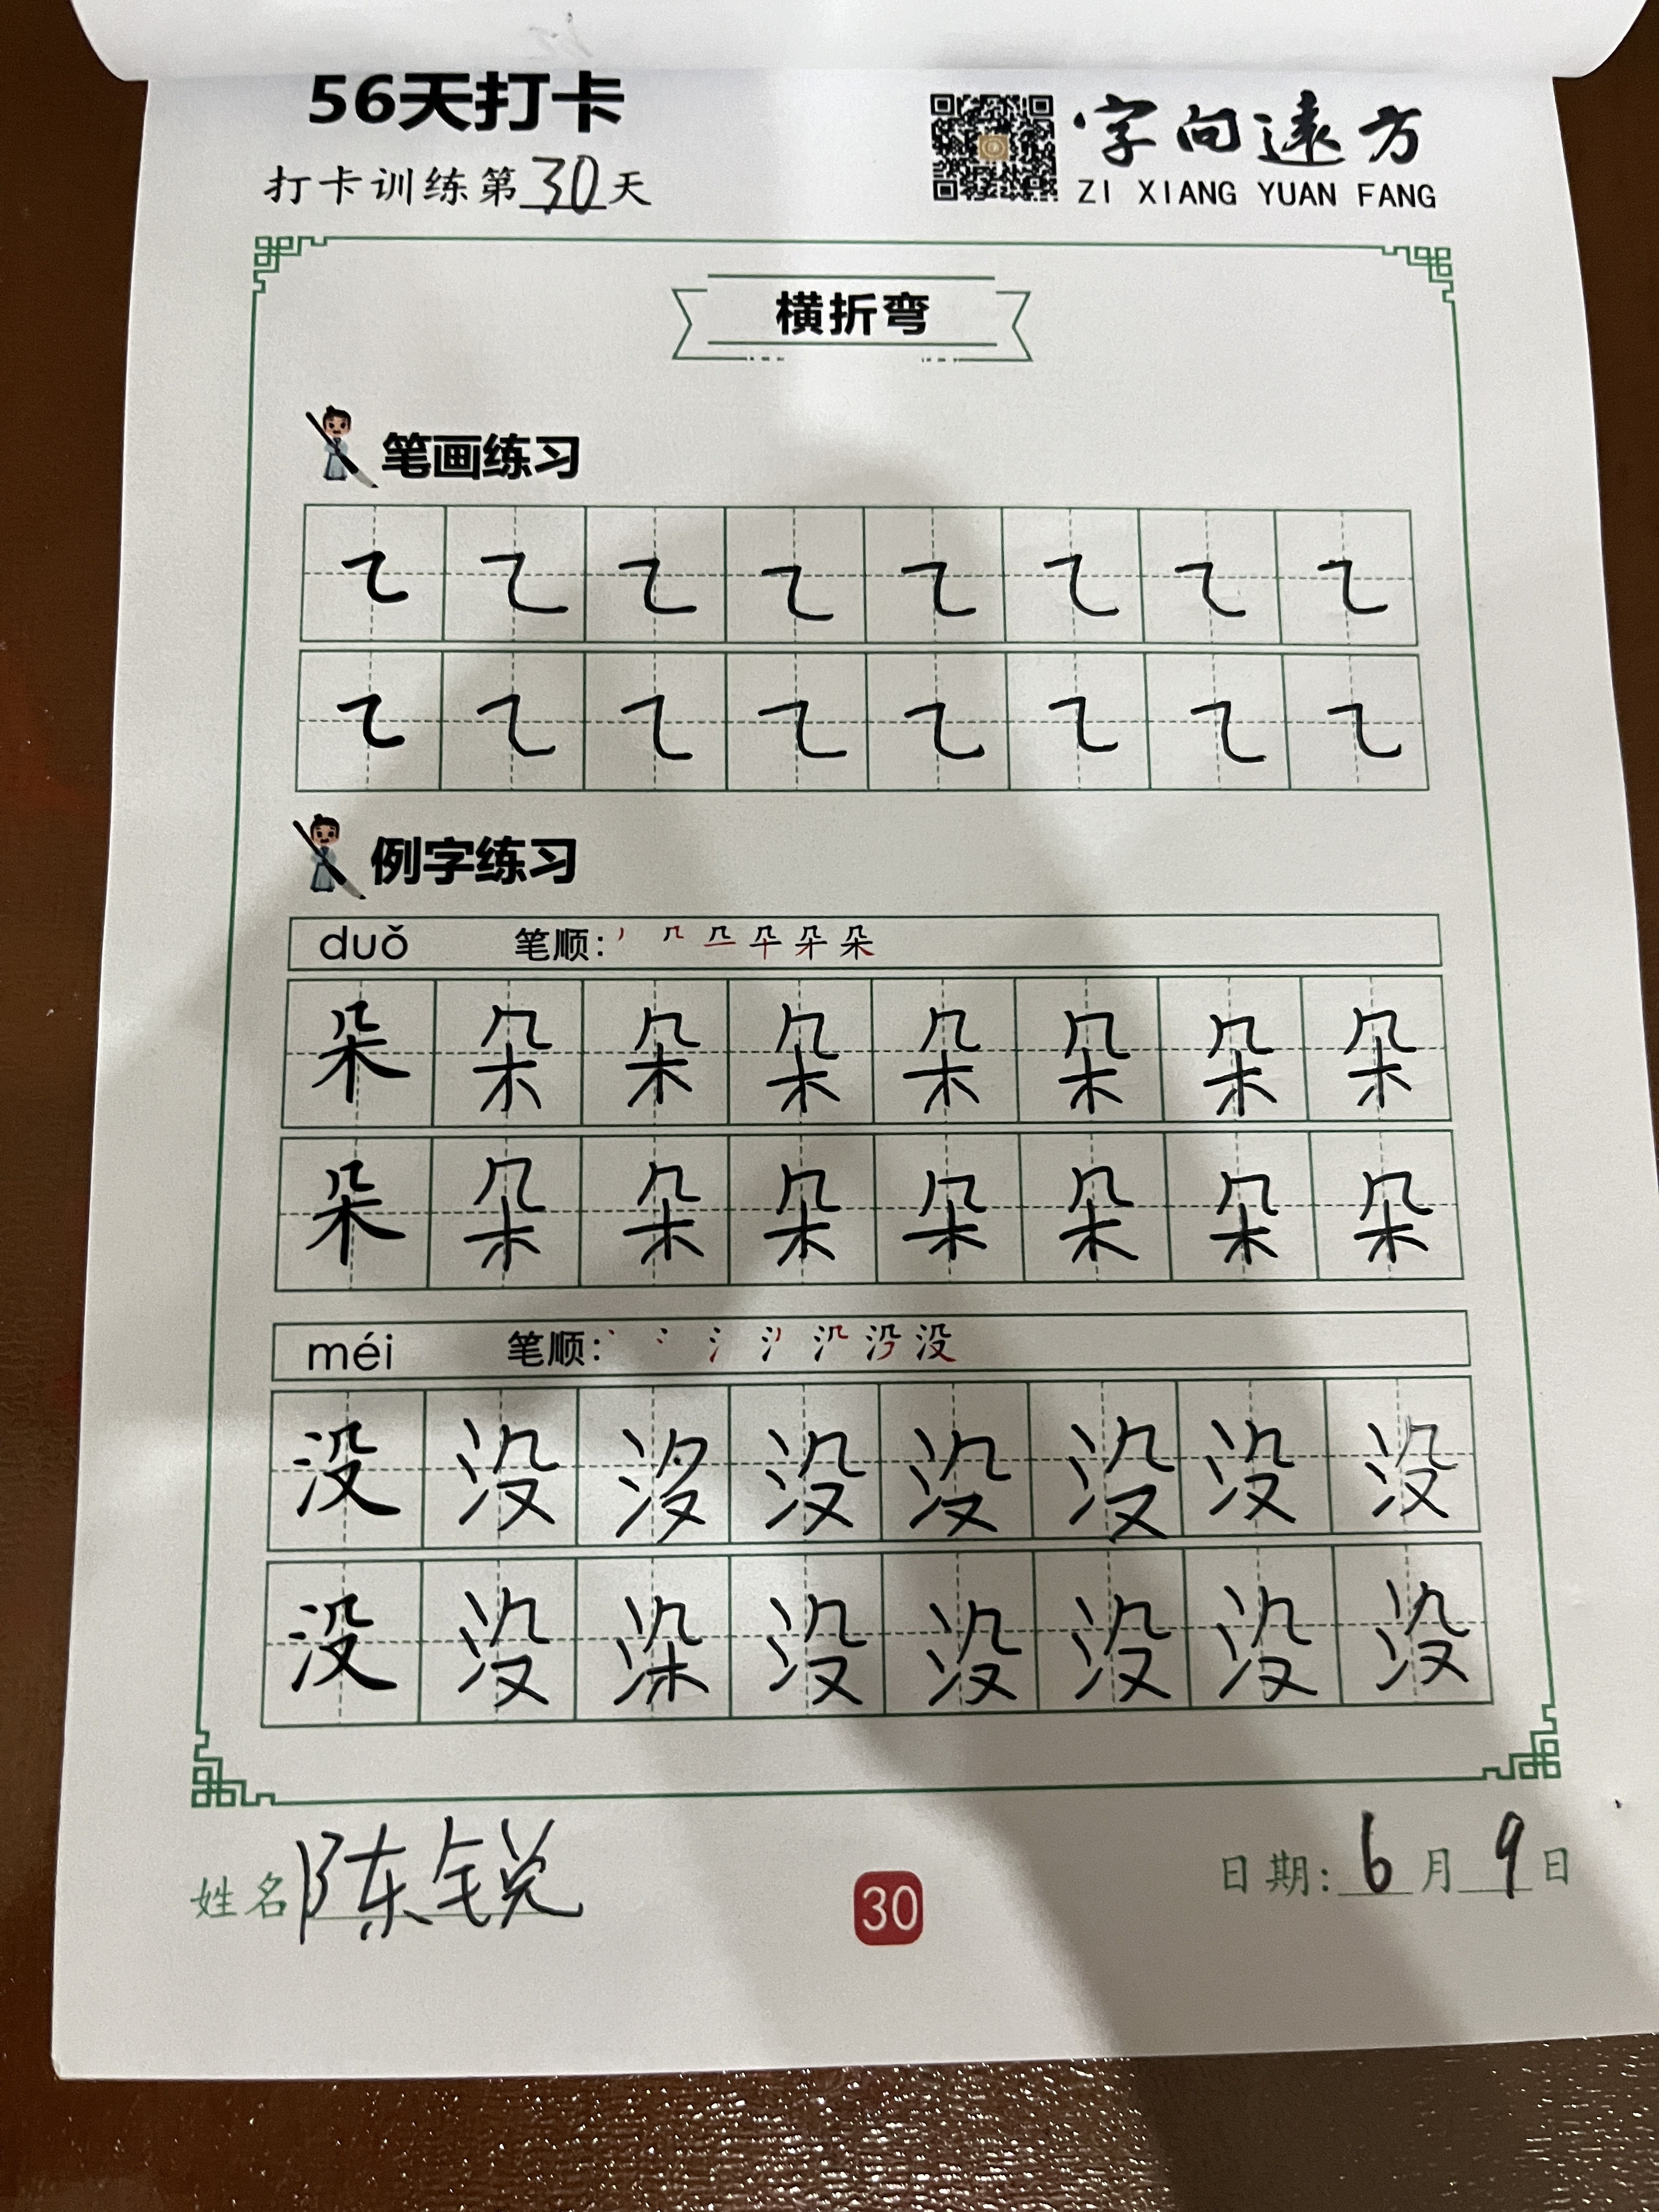 56天打卡
打卡训练第30天
字向遠方
ZI XIANG YUAN FANG
横折弯
笔画练习
㇍ ㇍ ㇍ ㇍ ㇍ ㇍ ㇍ ㇍
㇍ ㇍ ㇍ ㇍ ㇍ ㇍ ㇍ ㇍
例字练习
duǒ 笔顺:
朵 朵 朵 朵 朵 朵 朵 朵
朵 朵 朵 朵 朵 朵 朵 朵
méi 笔顺:
没 没 没 没 没 没 没 没
没 没 没 没 没 没 没
姓名 陈锐
30
日期: 6月9日